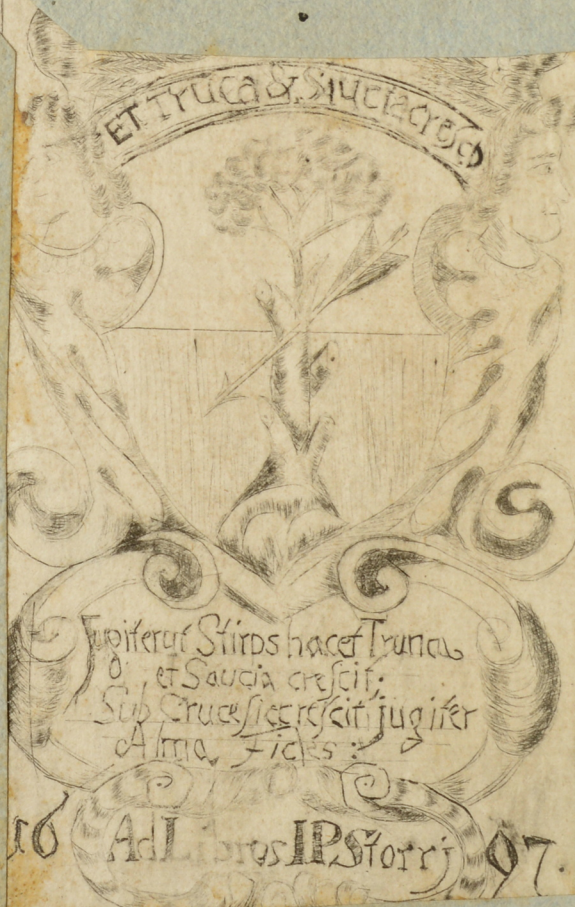 ET Truca & Siucia cresc
Jugiter ut Stirps hacet Trunca
et Saucia crescit;
Sub Cruce sic crescit jugiter
Alma Fides:
16 Ad Libros IP Storrj 97.